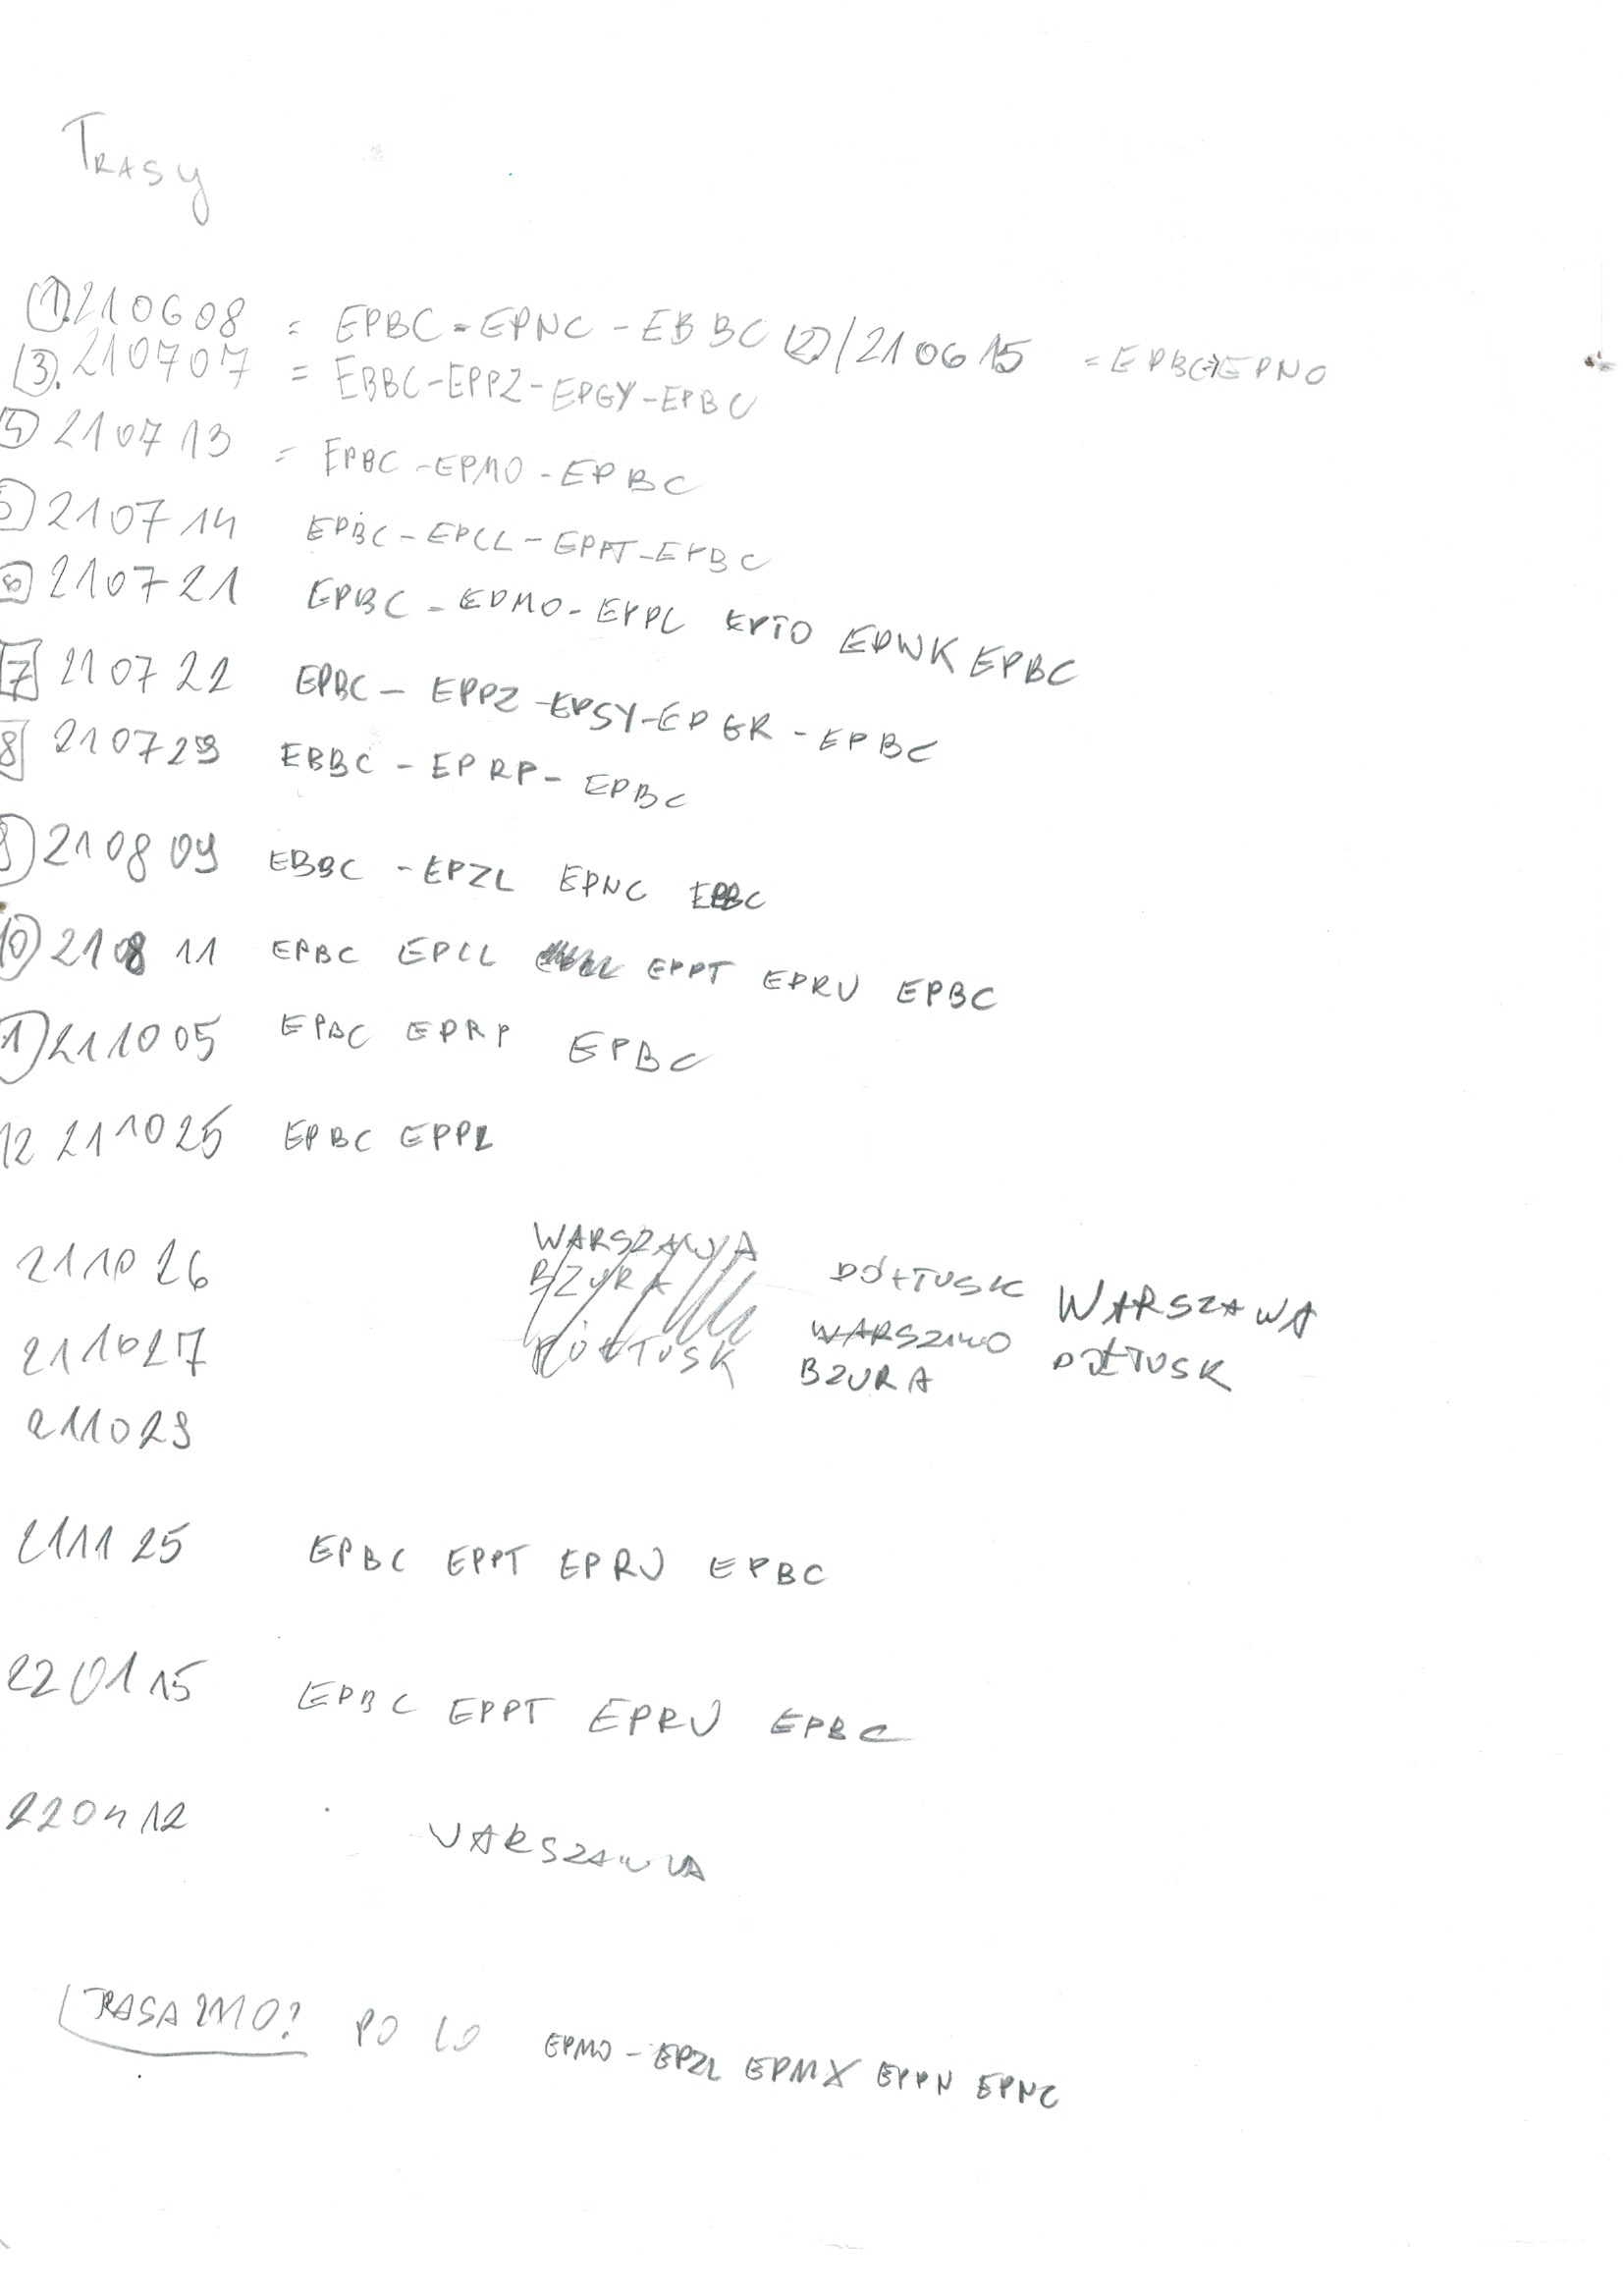 TRASY
1. 210608 = EPBC = EPNC - EBBC (2) / 210615 = EPBC → EPNO
3. 210707 = EBBC - EPPZ - EPGY - EPBC
210713 = EPBC - EPMO - EPBC
210714 EPBC - EPCL - EPPT - EPBC
6 210721 EPBC - EPMO - EPPL EPTO EPWK EPBC
7 210722 EPBC - EPPZ - EPSY - EPGR - EPBC
8 210729 EBBC - EPRP - EPBC
9 210809 EBBC - EPZL EPNC EBBC
10 210811 EPBC EPCL EPPT EPRU EPBC
1 211005 EPBC EPRP EPBC
12 211025 EPBC EPPL
WARSZAWA
211026 BZURA PÓŁTUSK WARSZAWA
211027 PÓŁTUSK BZURA PÓŁTUSK
211029
211125 EPBC EPPT EPRU EPBC
220115 EPBC EPPT EPRU EPBC
220412 WARSZAWA
TRASA 2110? PO LO EPMO - EPZL EPMX EPPN EPNC